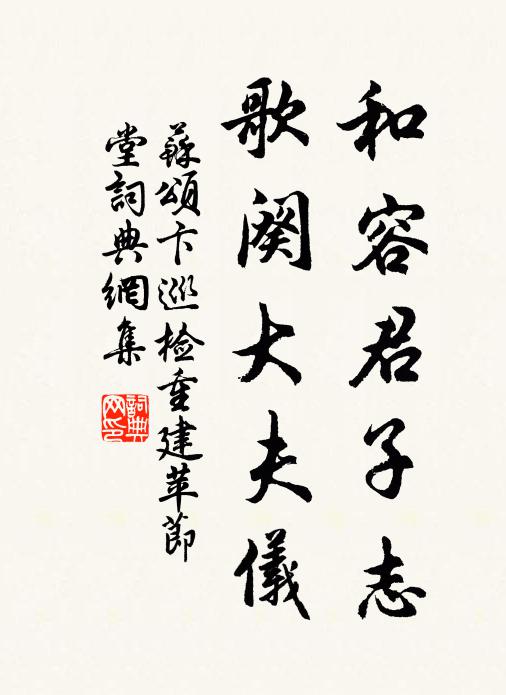 和容君子志
歌阕大夫儀
蘇頌卞巡检重建苹節
堂詞典網集
詞典网印